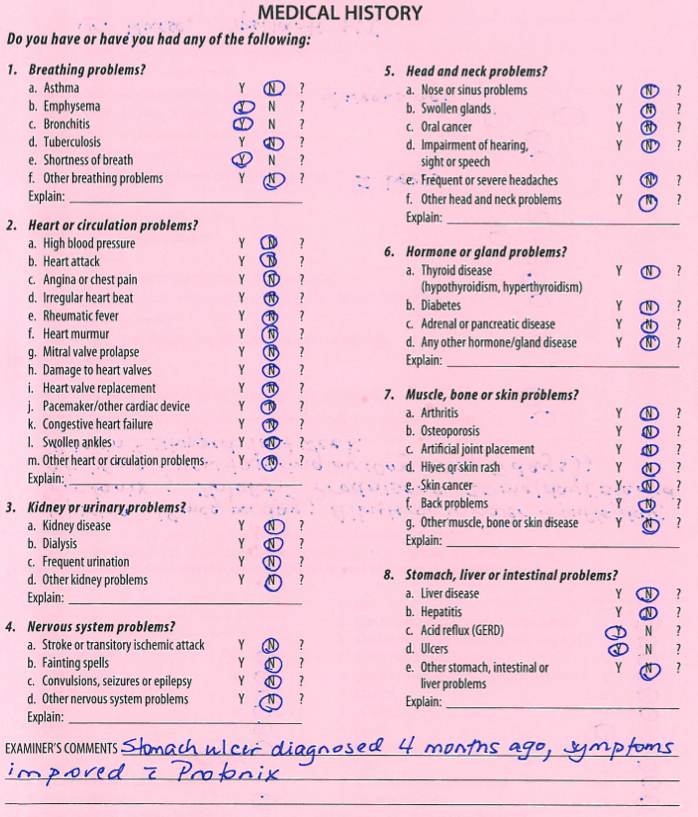 MEDICAL HISTORY
Do you have or have you had any of the following:
1. Breathing problems?
a. Asthma Y N ?
b. Emphysema Y N ?
c. Bronchitis Y N ?
d. Tuberculosis Y N ?
e. Shortness of breath Y N ?
f. Other breathing problems Y N ?
Explain:
2. Heart or circulation problems?
a. High blood pressure Y N ?
b. Heart attack Y N ?
c. Angina or chest pain Y N ?
d. Irregular heart beat Y N ?
e. Rheumatic fever Y N ?
f. Heart murmur Y N ?
g. Mitral valve prolapse Y N ?
h. Damage to heart valves Y N ?
i. Heart valve replacement Y N ?
j. Pacemaker/other cardiac device Y N ?
k. Congestive heart failure Y N ?
l. Swollen ankles Y N ?
m. Other heart or circulation problems Y N ?
Explain:
3. Kidney or urinary problems?
a. Kidney disease Y N ?
b. Dialysis Y N ?
c. Frequent urination Y N ?
d. Other kidney problems Y N ?
Explain:
4. Nervous system problems?
a. Stroke or transitory ischemic attack Y N ?
b. Fainting spells Y N ?
c. Convulsions, seizures or epilepsy Y N ?
d. Other nervous system problems Y N ?
Explain:
5. Head and neck problems?
a. Nose or sinus problems Y N ?
b. Swollen glands Y N ?
c. Oral cancer Y N ?
d. Impairment of hearing, Y N ?
sight or speech
e. Frequent or severe headaches Y N ?
f. Other head and neck problems Y N ?
Explain:
6. Hormone or gland problems?
a. Thyroid disease Y N ?
(hypothyroidism, hyperthyroidism)
b. Diabetes Y N ?
c. Adrenal or pancreatic disease Y N ?
d. Any other hormone/gland disease Y N ?
Explain:
7. Muscle, bone or skin problems?
a. Arthritis Y N ?
b. Osteoporosis Y N ?
c. Artificial joint placement Y N ?
d. Hives or skin rash Y N ?
e. Skin cancer Y N ?
f. Back problems Y N ?
g. Other muscle, bone or skin disease Y N ?
Explain:
8. Stomach, liver or intestinal problems?
a. Liver disease Y N ?
b. Hepatitis Y N ?
c. Acid reflux (GERD) Y N ?
d. Ulcers Y N ?
e. Other stomach, intestinal or Y N ?
liver problems
Explain:
EXAMINER'S COMMENTS Stomach ulcer diagnosed 4 months ago, symptoms
improved c̄ Protonix